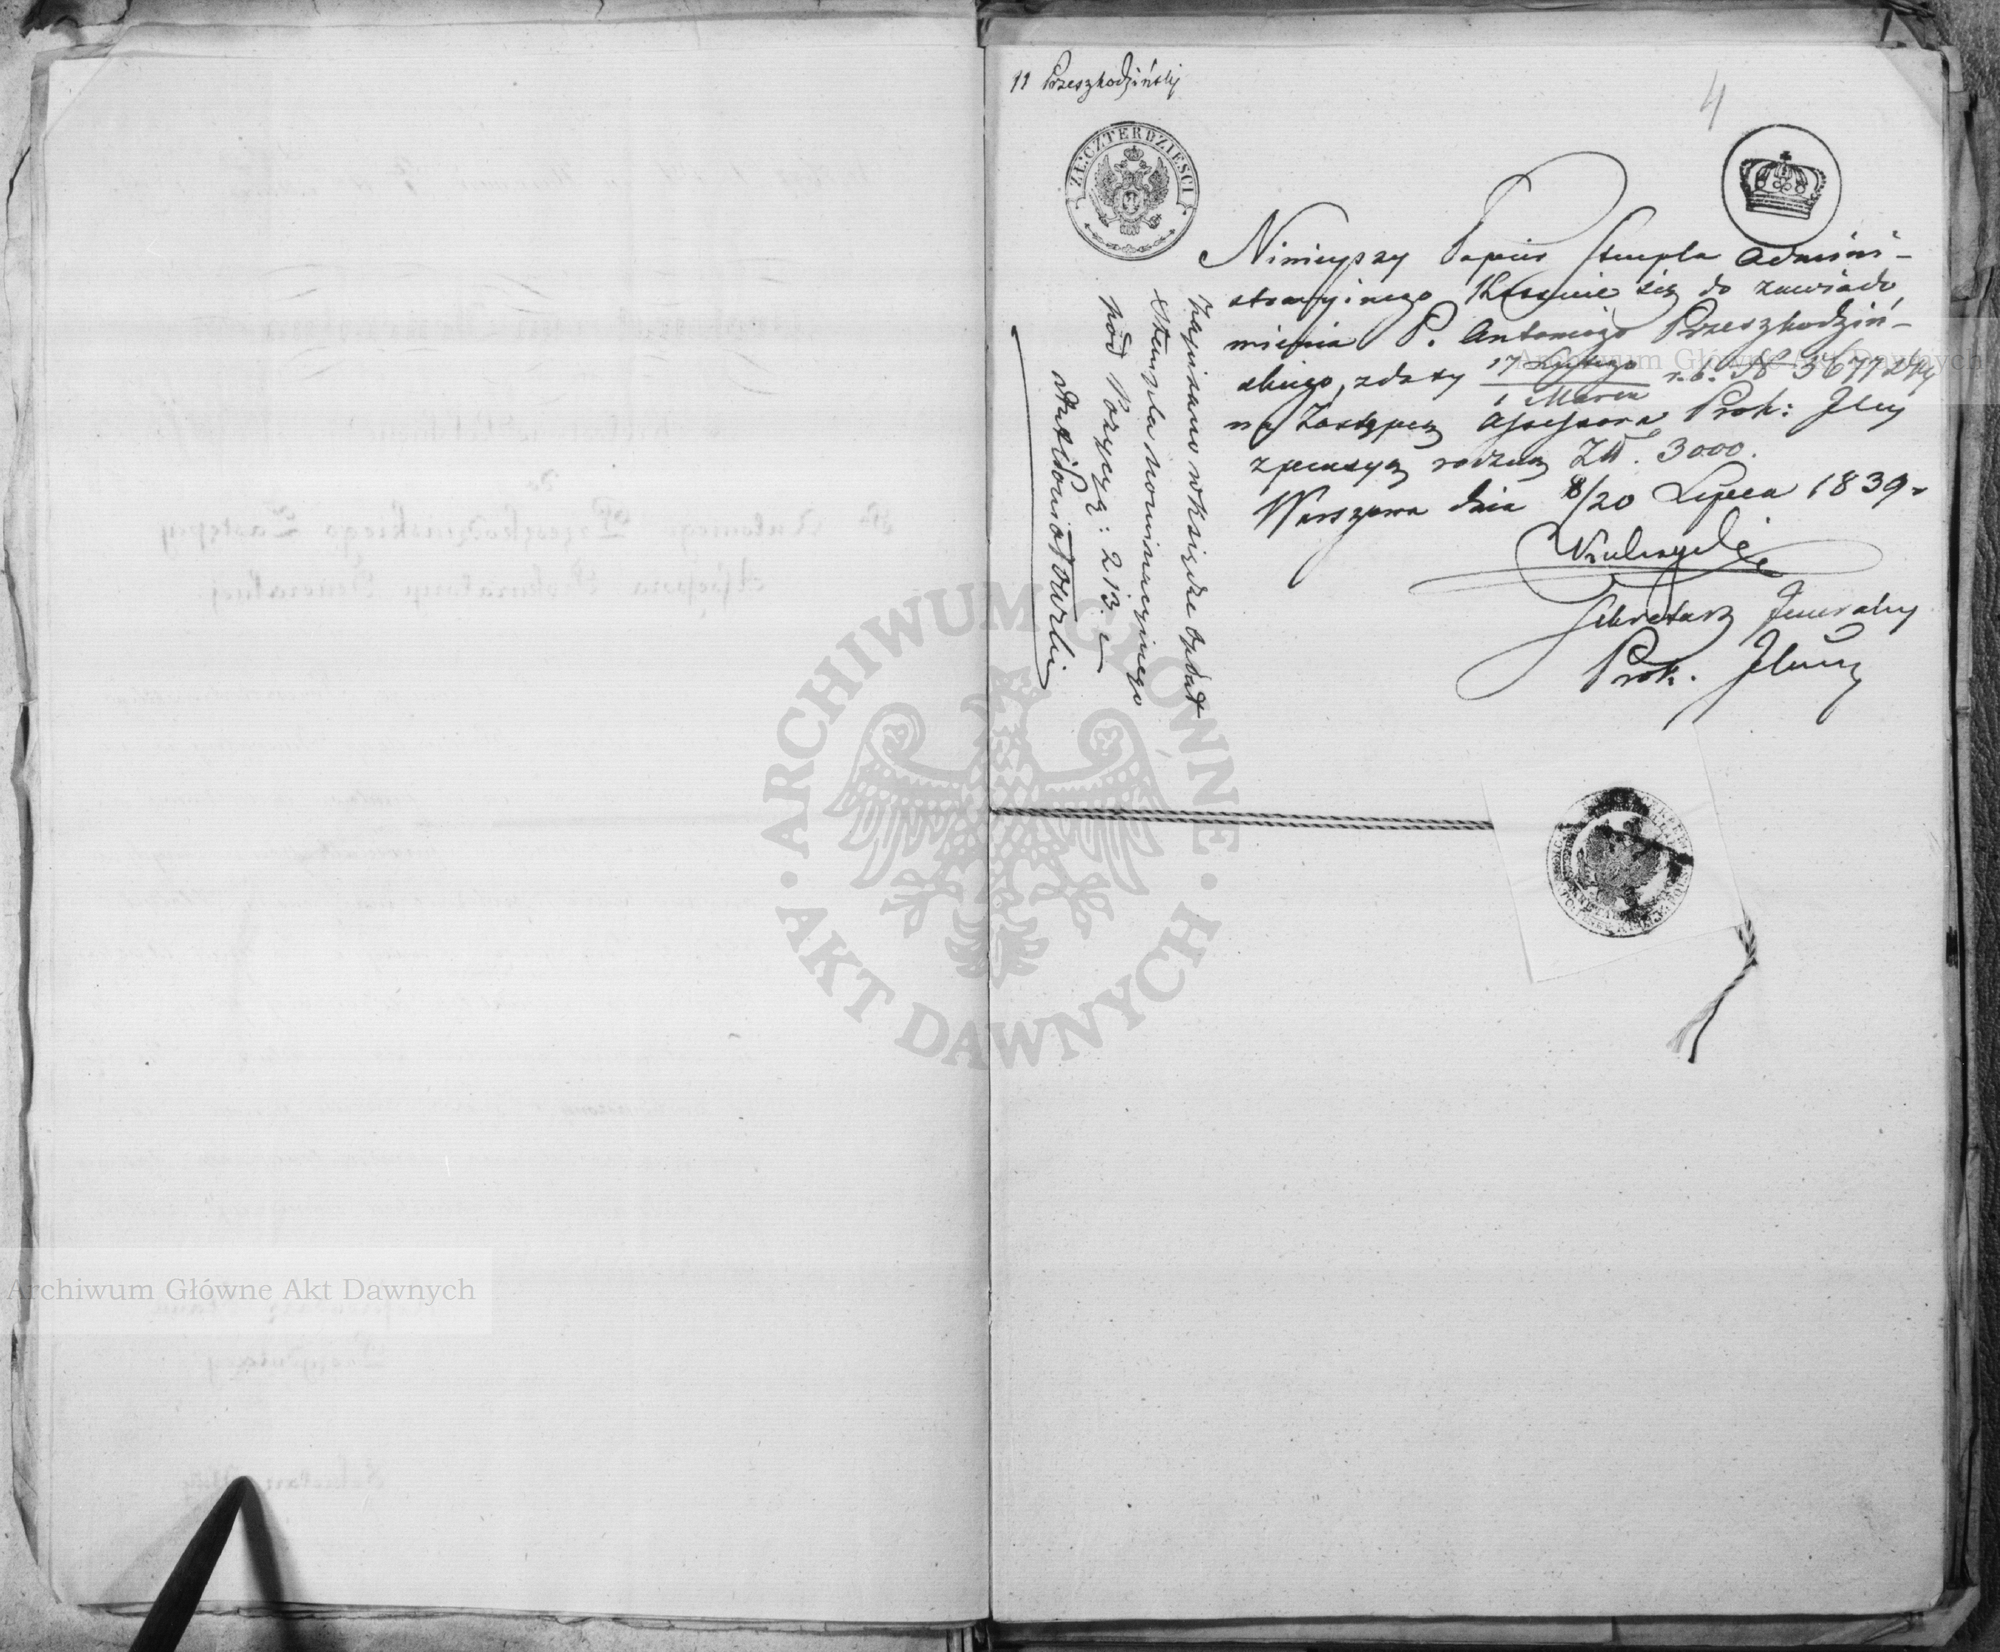 11 Przeszkodziński
4
ZŁ: CZTERDZIEŚCI
Ninieyszy Papier Stempla Admini-
stracyinego Kassuie się do zawiado
mienia P. Antoniego Przeszkodziń-
skiego, z daty 17 Lutego / 1 Marca r. b. N 3677
na Zastępcę Assessora Prok: Jlney
z pensyą roczną Zł. 3000.
Warszawa dnia 8/20 Lipca 1839.
Sekretarz Jeneralny
Prok. Jlney
Zapisano w księdze Opłat
Stempla nominacyinego
pod Pozycyą: 213.
ARCHIWUM GŁÓWNE · AKT DAWNYCH ·
Archiwum Główne Akt Dawnych
Archiwum Główne Akt Dawnych